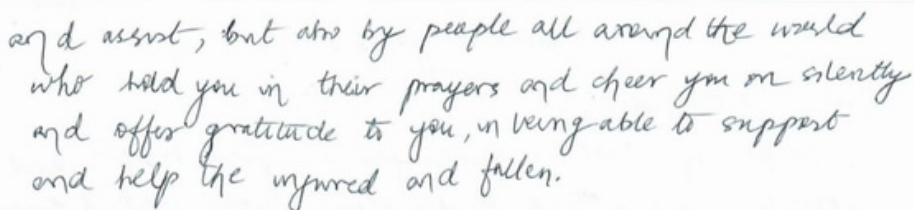 and assist, but also by people all around the world
who hold you in their prayers and cheer you on silently
and offer gratitude to you, in being able to support
and help the injured and fallen.